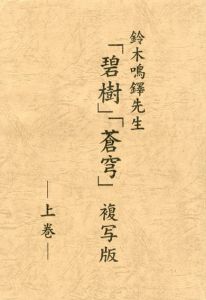 鈴木鳴鐸先生
「碧樹」「蒼穹」複写版
―上巻―